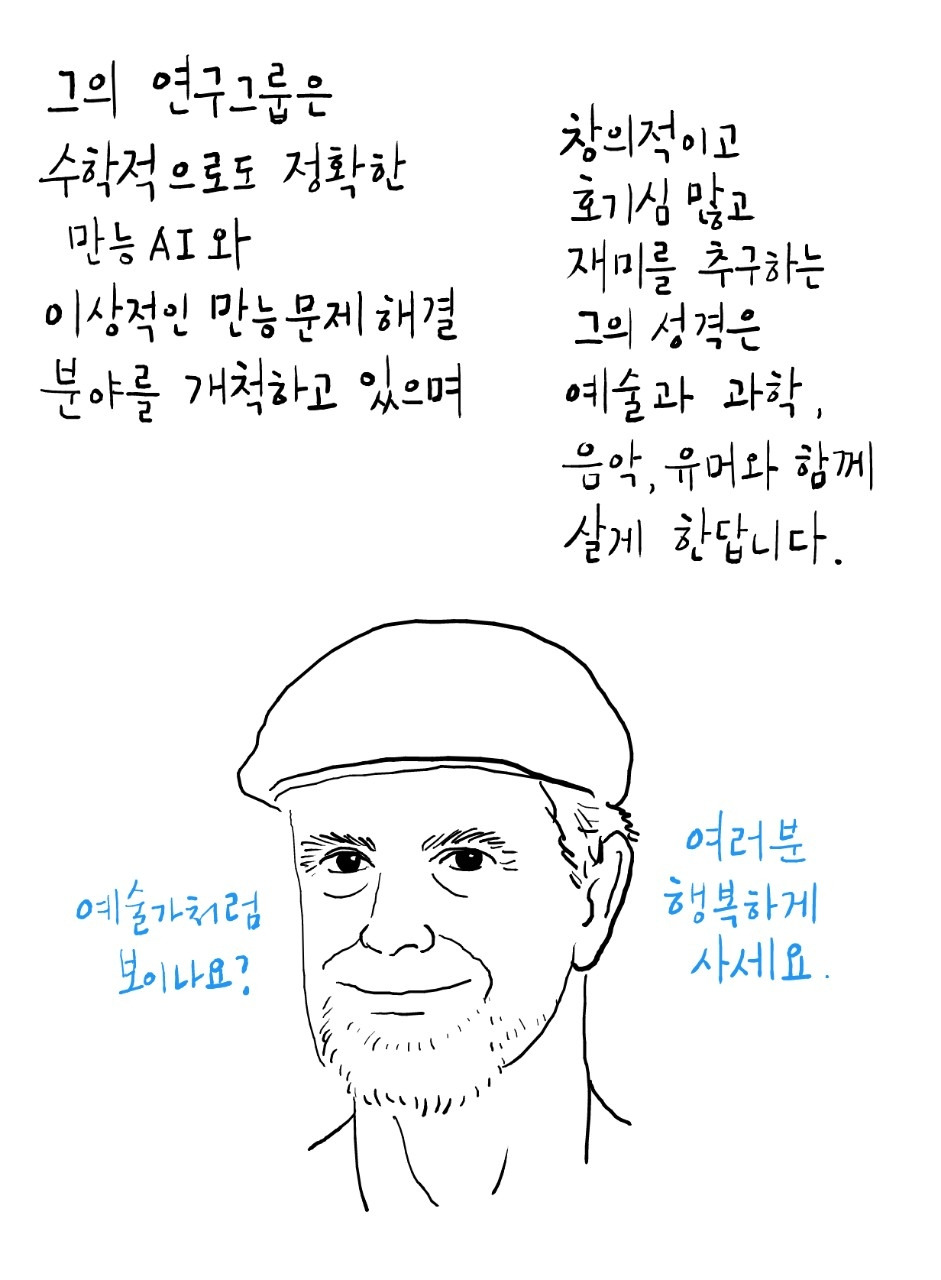 그의 연구그룹은
수학적으로도 정확한
만능 AI와
이상적인 만능문제 해결
분야를 개척하고 있으며
창의적이고
호기심 많고
재미를 추구하는
그의 성격은
예술과 과학,
음악, 유머와 함께
살게 한답니다.
예술가처럼
보이나요?
여러분
행복하게
사세요.